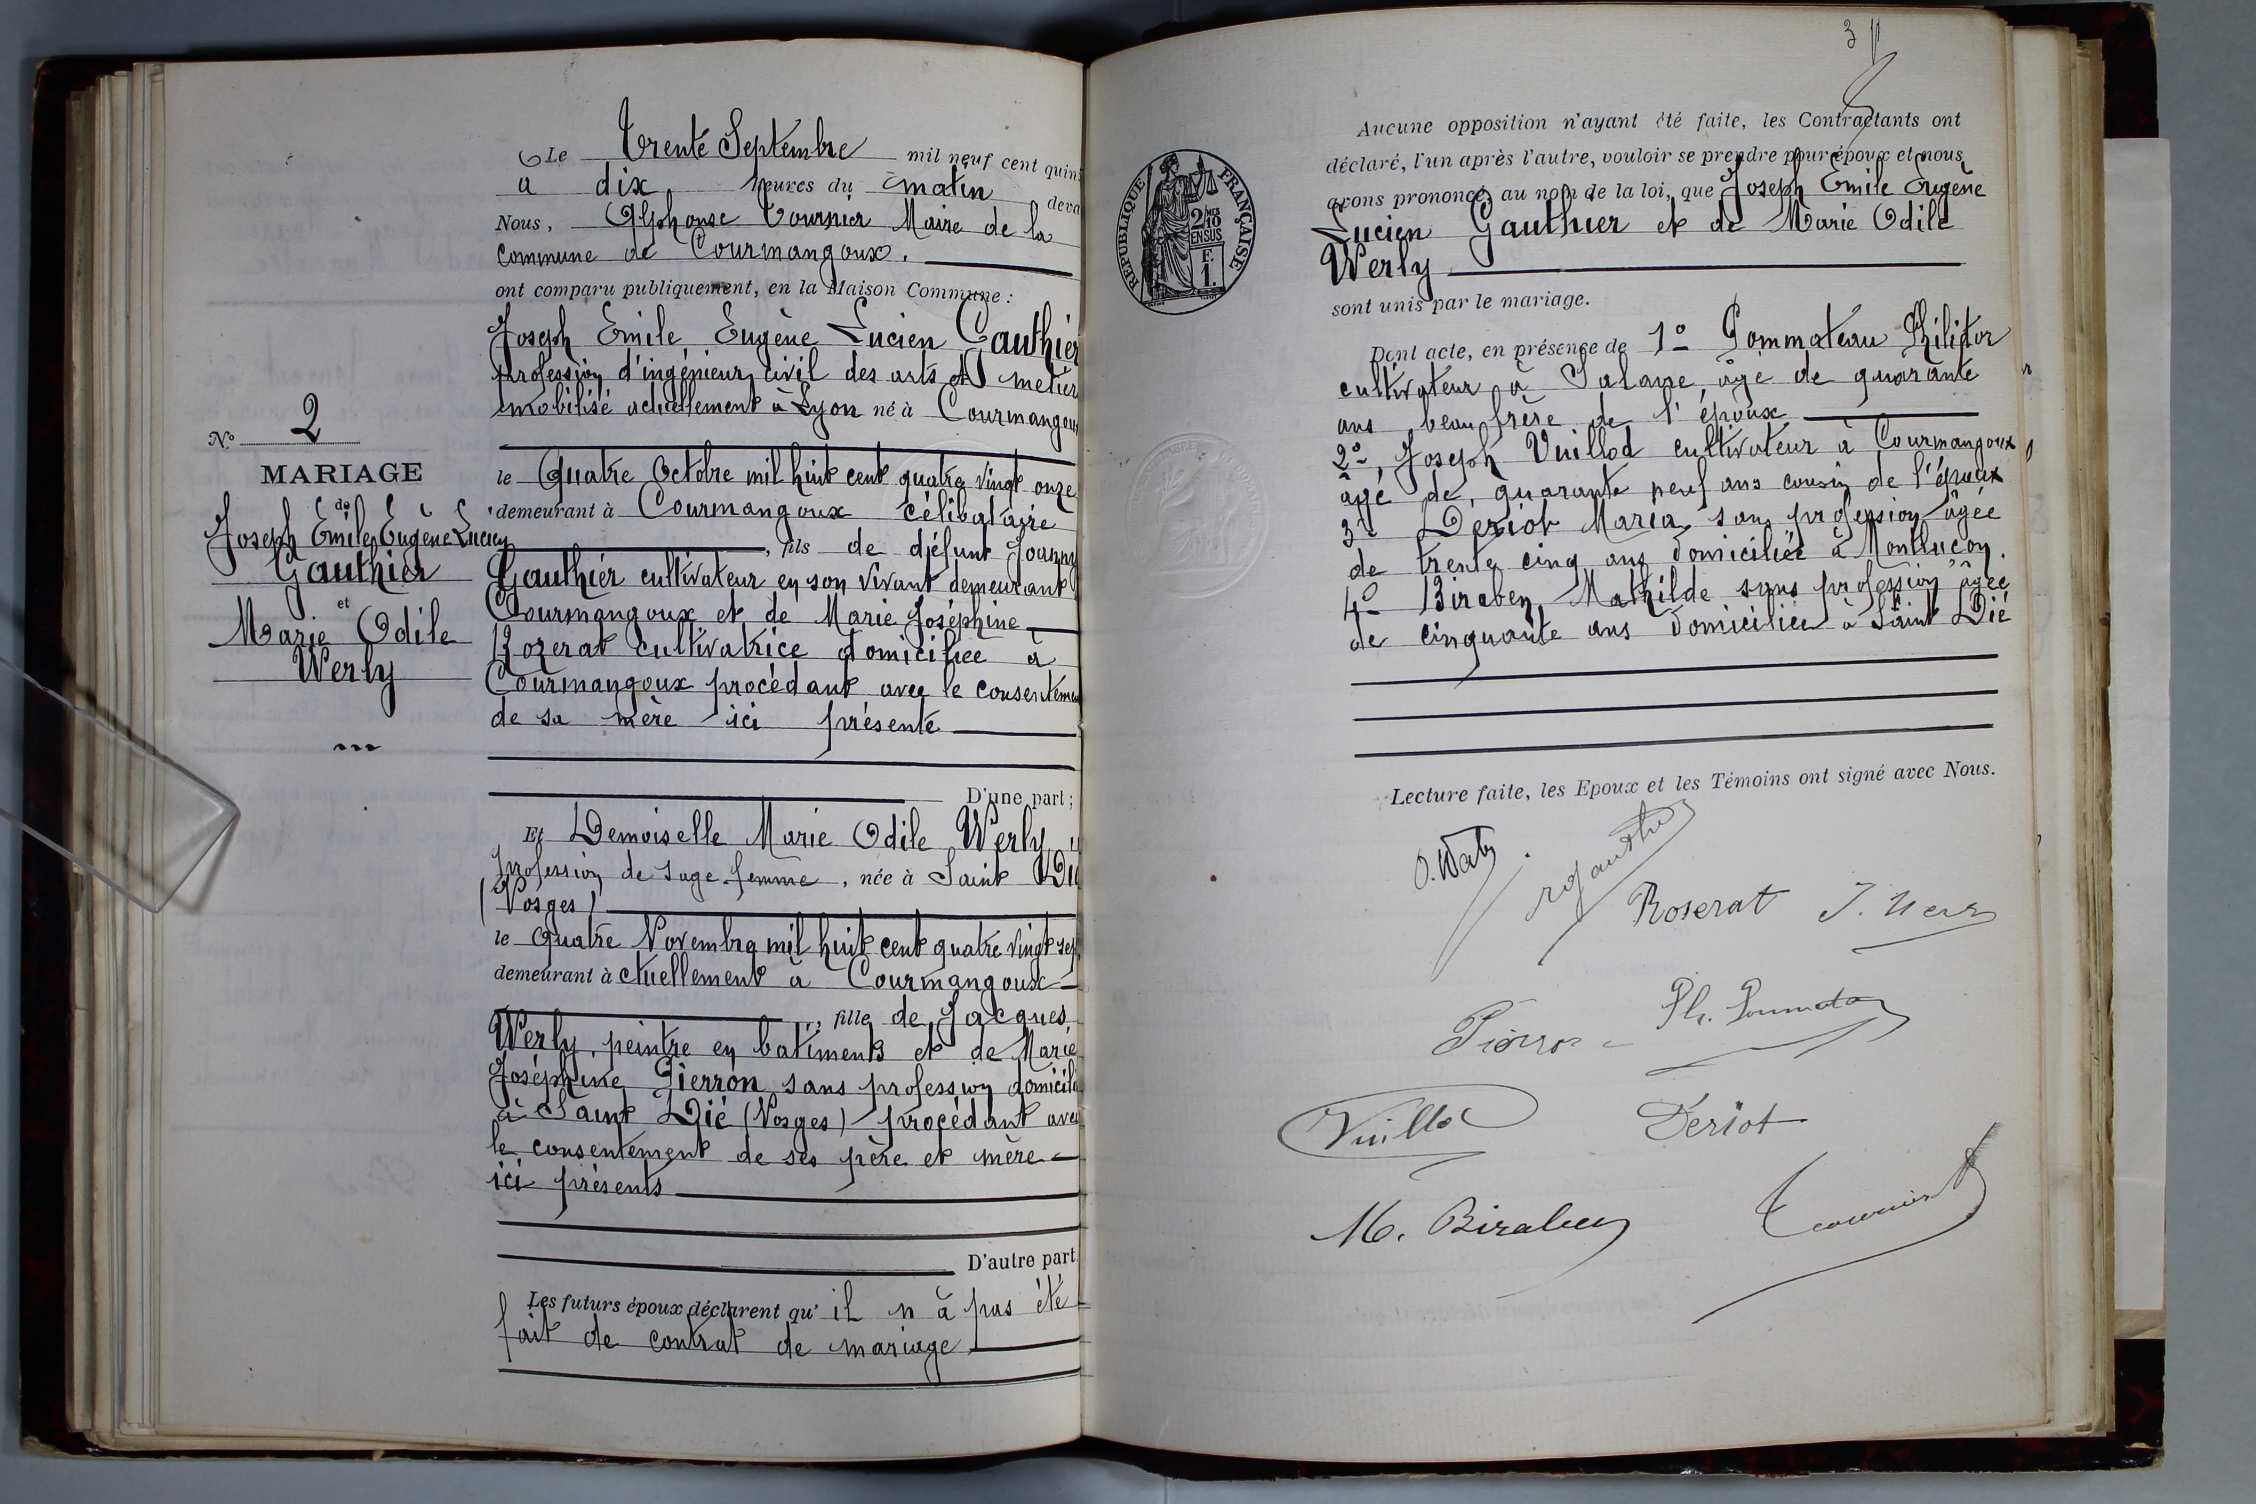 Le Trente Septembre mil neuf cent quin
à dix heures du matin deva
Nous, Alphonse Tournier Maire de la
commune de Courmangoux.
ont comparu publiquement, en la Maison Commune :
Joseph Emile Eugène Lucien Gauthier
profession d'ingénieur civil des arts et metier
mobilisé actuellement à Lyon né à Courmangoux
le Quatre Octobre mil huit cent quatre vingt onze
demeurant à Courmangoux célibataire
, fils de défunt Joanny
Gauthier cultivateur en son vivant demeurant
Courmangoux et de Marie Joséphine
Rozerat cultivatrice domiciliée à
Courmangoux procédant avec le consentemen
de sa mère ici présente
D'une part ;
Et Demoiselle Marie Odile Werly
profession de sage-femme, née à Saint Dié
(Vosges)
le quatre Novembre mil huit cent quatre vingt sep
demeurant à ctuellement à Courmangoux
, fille de Jacques
Werly, peintre en batiments et de Marie
Joséphine Pierron sans profession domicilé
à Saint Dié (Vosges) procédant avec
le consentement de ses père et mère
ici présents
D'autre part
Les futurs époux déclarent qu' il n à pas été
fait de contrat de mariage
N° 2
MARIAGE
de
Joseph Emile Eugène Lucien
Gauthier
et
Marie Odile
Werly
3
Aucune opposition n'ayant été faite, les Contractants ont
déclaré, l'un après l'autre, vouloir se prendre pour époux et nous
avons prononcé, au nom de la loi, que Joseph Emile Eugène
Lucien Gauthier et de Marie Odile
Werly
sont unis par le mariage.
RÉPUBLIQUE FRANÇAISE
2/10 MES
EN SUS
F.
1.
Dont acte, en présence de 1° Pommateau Philiptor
cultivateur à Salavre, âgé de quarante
ans beau frère de l'époux
2°, Joseph Vuillod cultivateur à Courmangoux
âgé de, quarante neuf ans cousin de l'époux
3° Dériot Maria sans profession âgée
de trente cinq ans domiciliée à Montluçon.
4° Biraben Mathilde sans profession âgée
de cinquante ans domiciliée à Saint Dié
Lecture faite, les Epoux et les Témoins ont signé avec Nous.
O. Werly
Roserat
Pierron
Vuillod
Deriot
M. Biraben
Tournier